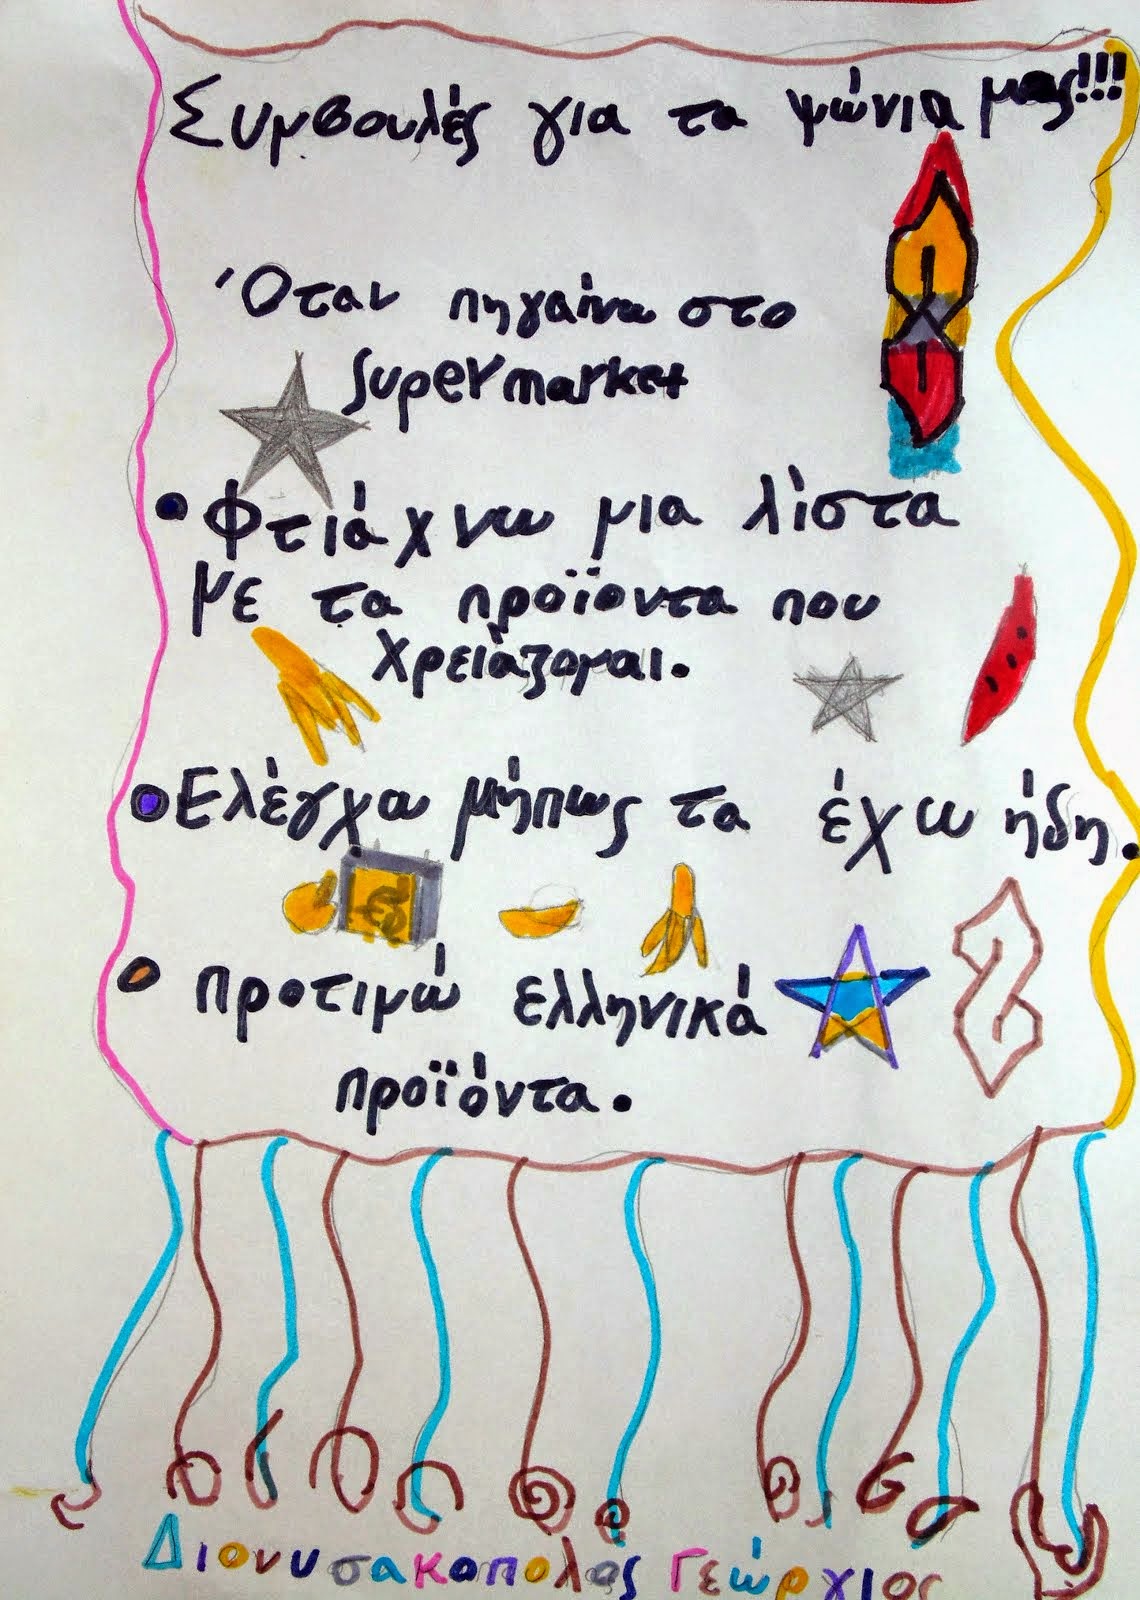 Συμβουλές για τα ψώνια μας!!!
Όταν πηγαίνω στο
Supermarket
• Φτιάχνω μια λίστα
με τα προϊοντα που
χρειάζομαι.
• Ελέγχω μήπως τα έχω ήδη.
• προτιμώ ελληνικά
προϊόντα.
Διονυσακοπολος Γεώρχιος